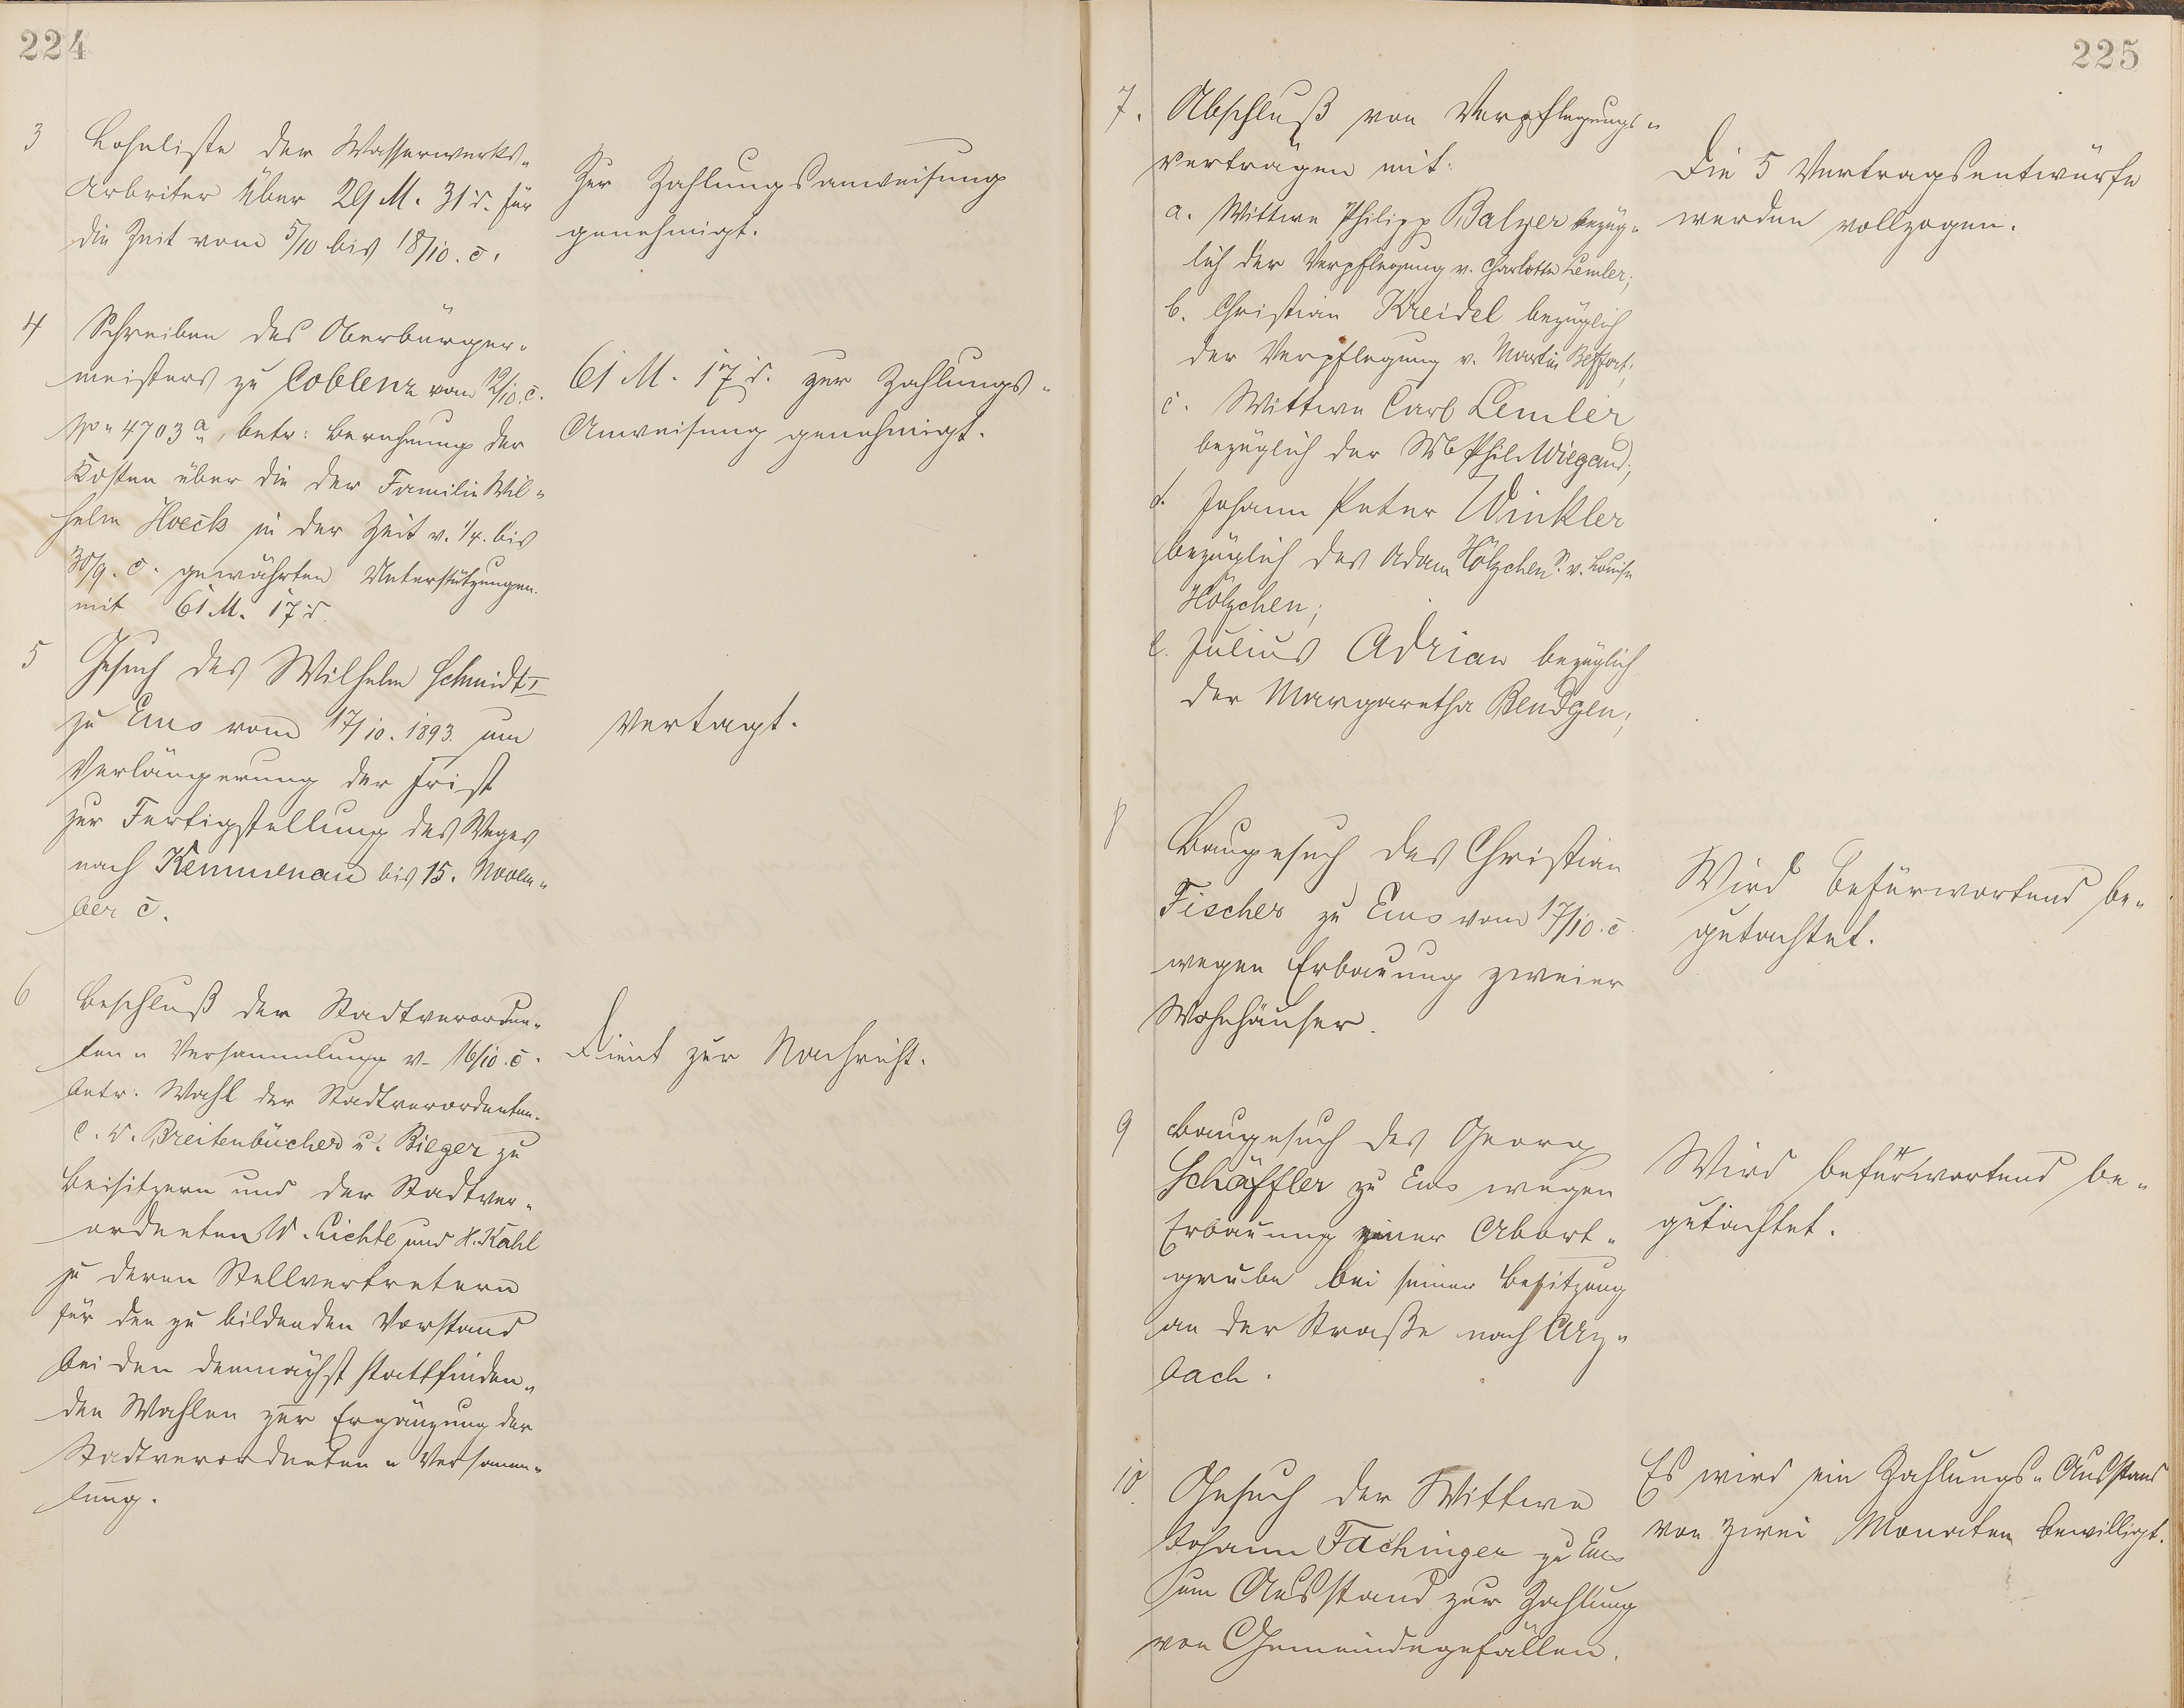 224
3 Lohnliste der Wasserwerks-
Arbeiter über 29 M. 31 d. für
die Zeit vom 5/10 bis 18/10. c.
Zur Zahlungsanweisung
genehmigt.
4 Schreiben des Oberbürger-
meisters zu Coblenz vom 12/10. c.
No 4703 a, betr: Berechnung der
Kosten über die der Familie Wil-
helm Hoeck in der Zeit v. 1/4. bis
30/9. c. gewährten Unterstützungen
mit 61 M. 17 d.
61 M. 17 d. zur Zahlungs-
Anweisung genehmigt.
5 Gesuch des Wilhelm Schmidt I
zu Ems vom 17/10. 1893. um
Verlängerung der Frist
zur Fertigstellung des Weges
nach Kemmenau bis 15. Novem-
ber c.
Vertagt.
6 Beschluß der Stadtverordne-
ten-Versammlung v. 16/10. c.
betr: Wahl der Stadtverordneten
C. W. Breitenbücher u. Bieger zu
Beisitzern und der Stadtver-
ordneten W. Lichte und H. Kahl
zu deren Stellvertretern
für den zu bildenden Vorstand
bei den demnächst stattfinden-
den Wahlen zur Ergänzung der
Stadtverordneten-Versamm-
lung.
Dient zur Nachricht.
225
7. Abschluß von Verpflegungs-
verträgen mit:
a. Wittwe Philipp Balzer bezüg-
lich der Verpflegung v. Charlotte Lemler;
b. Christian Kreidel bezüglich
der Verpflegung v. Martin
c. Wittwe Carl Lemler
bezüglich der Phil. Wiegand;
d. Johann Peter Winkler
bezüglich des Adam Hölzchen S. v. Louise
Hölzchen;
e. Julius Adrian bezüglich
der Margaretha Bendgen;
Die 5 Vertragsentwürfe
werden vollzogen.
8 Baugesuch des Christian
Fischer zu Ems vom 17/10. c.
wegen Erbauung zweier
Wohnhäuser.
Wird befürwortend be-
gutachtet.
9 Baugesuch des Georg
Schäffler zu Ems wegen
Erbauung einer Abort-
grube bei seiner Besitzung
an der Straße nach Arz-
bach.
Wird befürwortend be-
gutachtet.
10. Gesuch der Wittwe
Johann Fachinger zu Ems
um Ausstand zur Zahlung
von Gemeindegefällen.
Es wird ein Zahlungs-Ausstand
von zwei Monaten bewilligt.